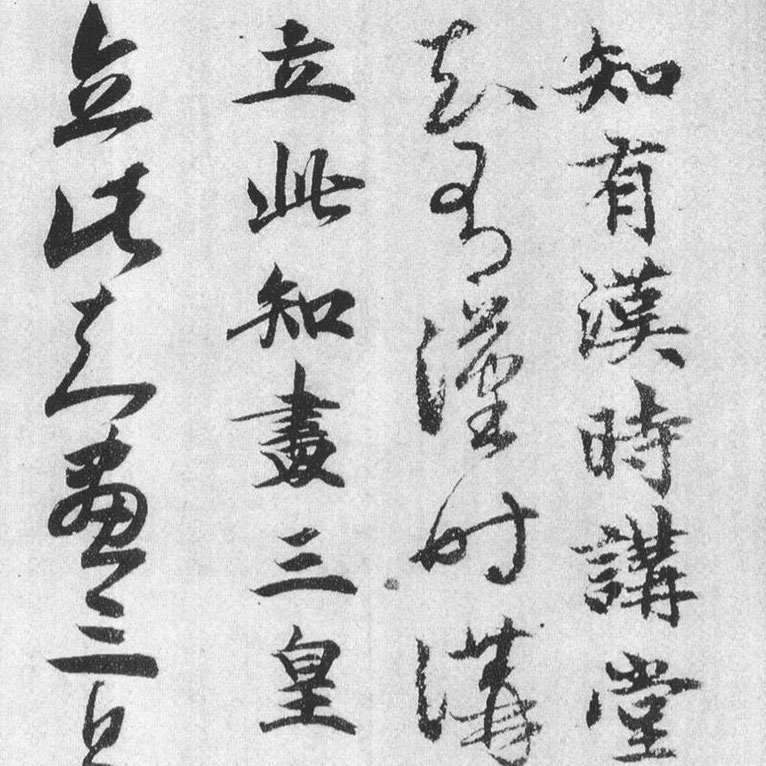 知有漢時講堂
知有漢时講
立此知畫三皇
立此知畫三皇